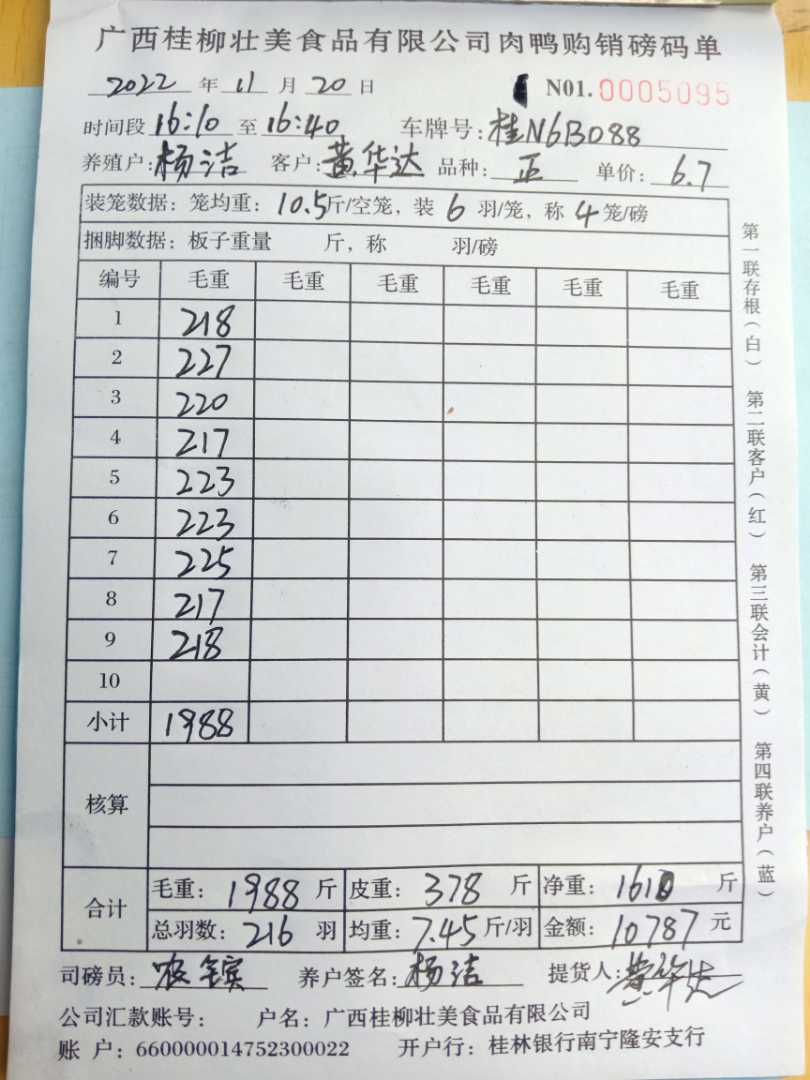 广西桂柳壮美食品有限公司肉鸭购销磅码单
2022 年 11 月 20 日 N01. 0005095
时间段 16:10 至 16:40 车牌号: 桂N6B088
养殖户: 杨洁 客户: 黄华达 品种: 正 单价: 6.7
装笼数据: 笼均重: 10.5斤/空笼, 装 6 羽/笼, 称 4 笼/磅
捆脚数据: 板子重量 斤, 称 羽/磅
编号 毛重 毛重 毛重 毛重 毛重 毛重
1 218
2 227
3 220
4 217
5 223
6 223
7 225
8 217
9 218
10
小计 1988
核算
合计 毛重: 1988 斤 皮重: 378 斤 净重: 1610 斤
总羽数: 216 羽 均重: 7.45 斤/羽 金额: 10787 元
司磅员: 农 养户签名: 杨洁 提货人: 黄华达
公司汇款账号: 户名: 广西桂柳壮美食品有限公司
账 户: 660000014752300022 开户行: 桂林银行南宁隆安支行
第一联存根(白) 第二联客户(红) 第三联会计(黄) 第四联养户(蓝)